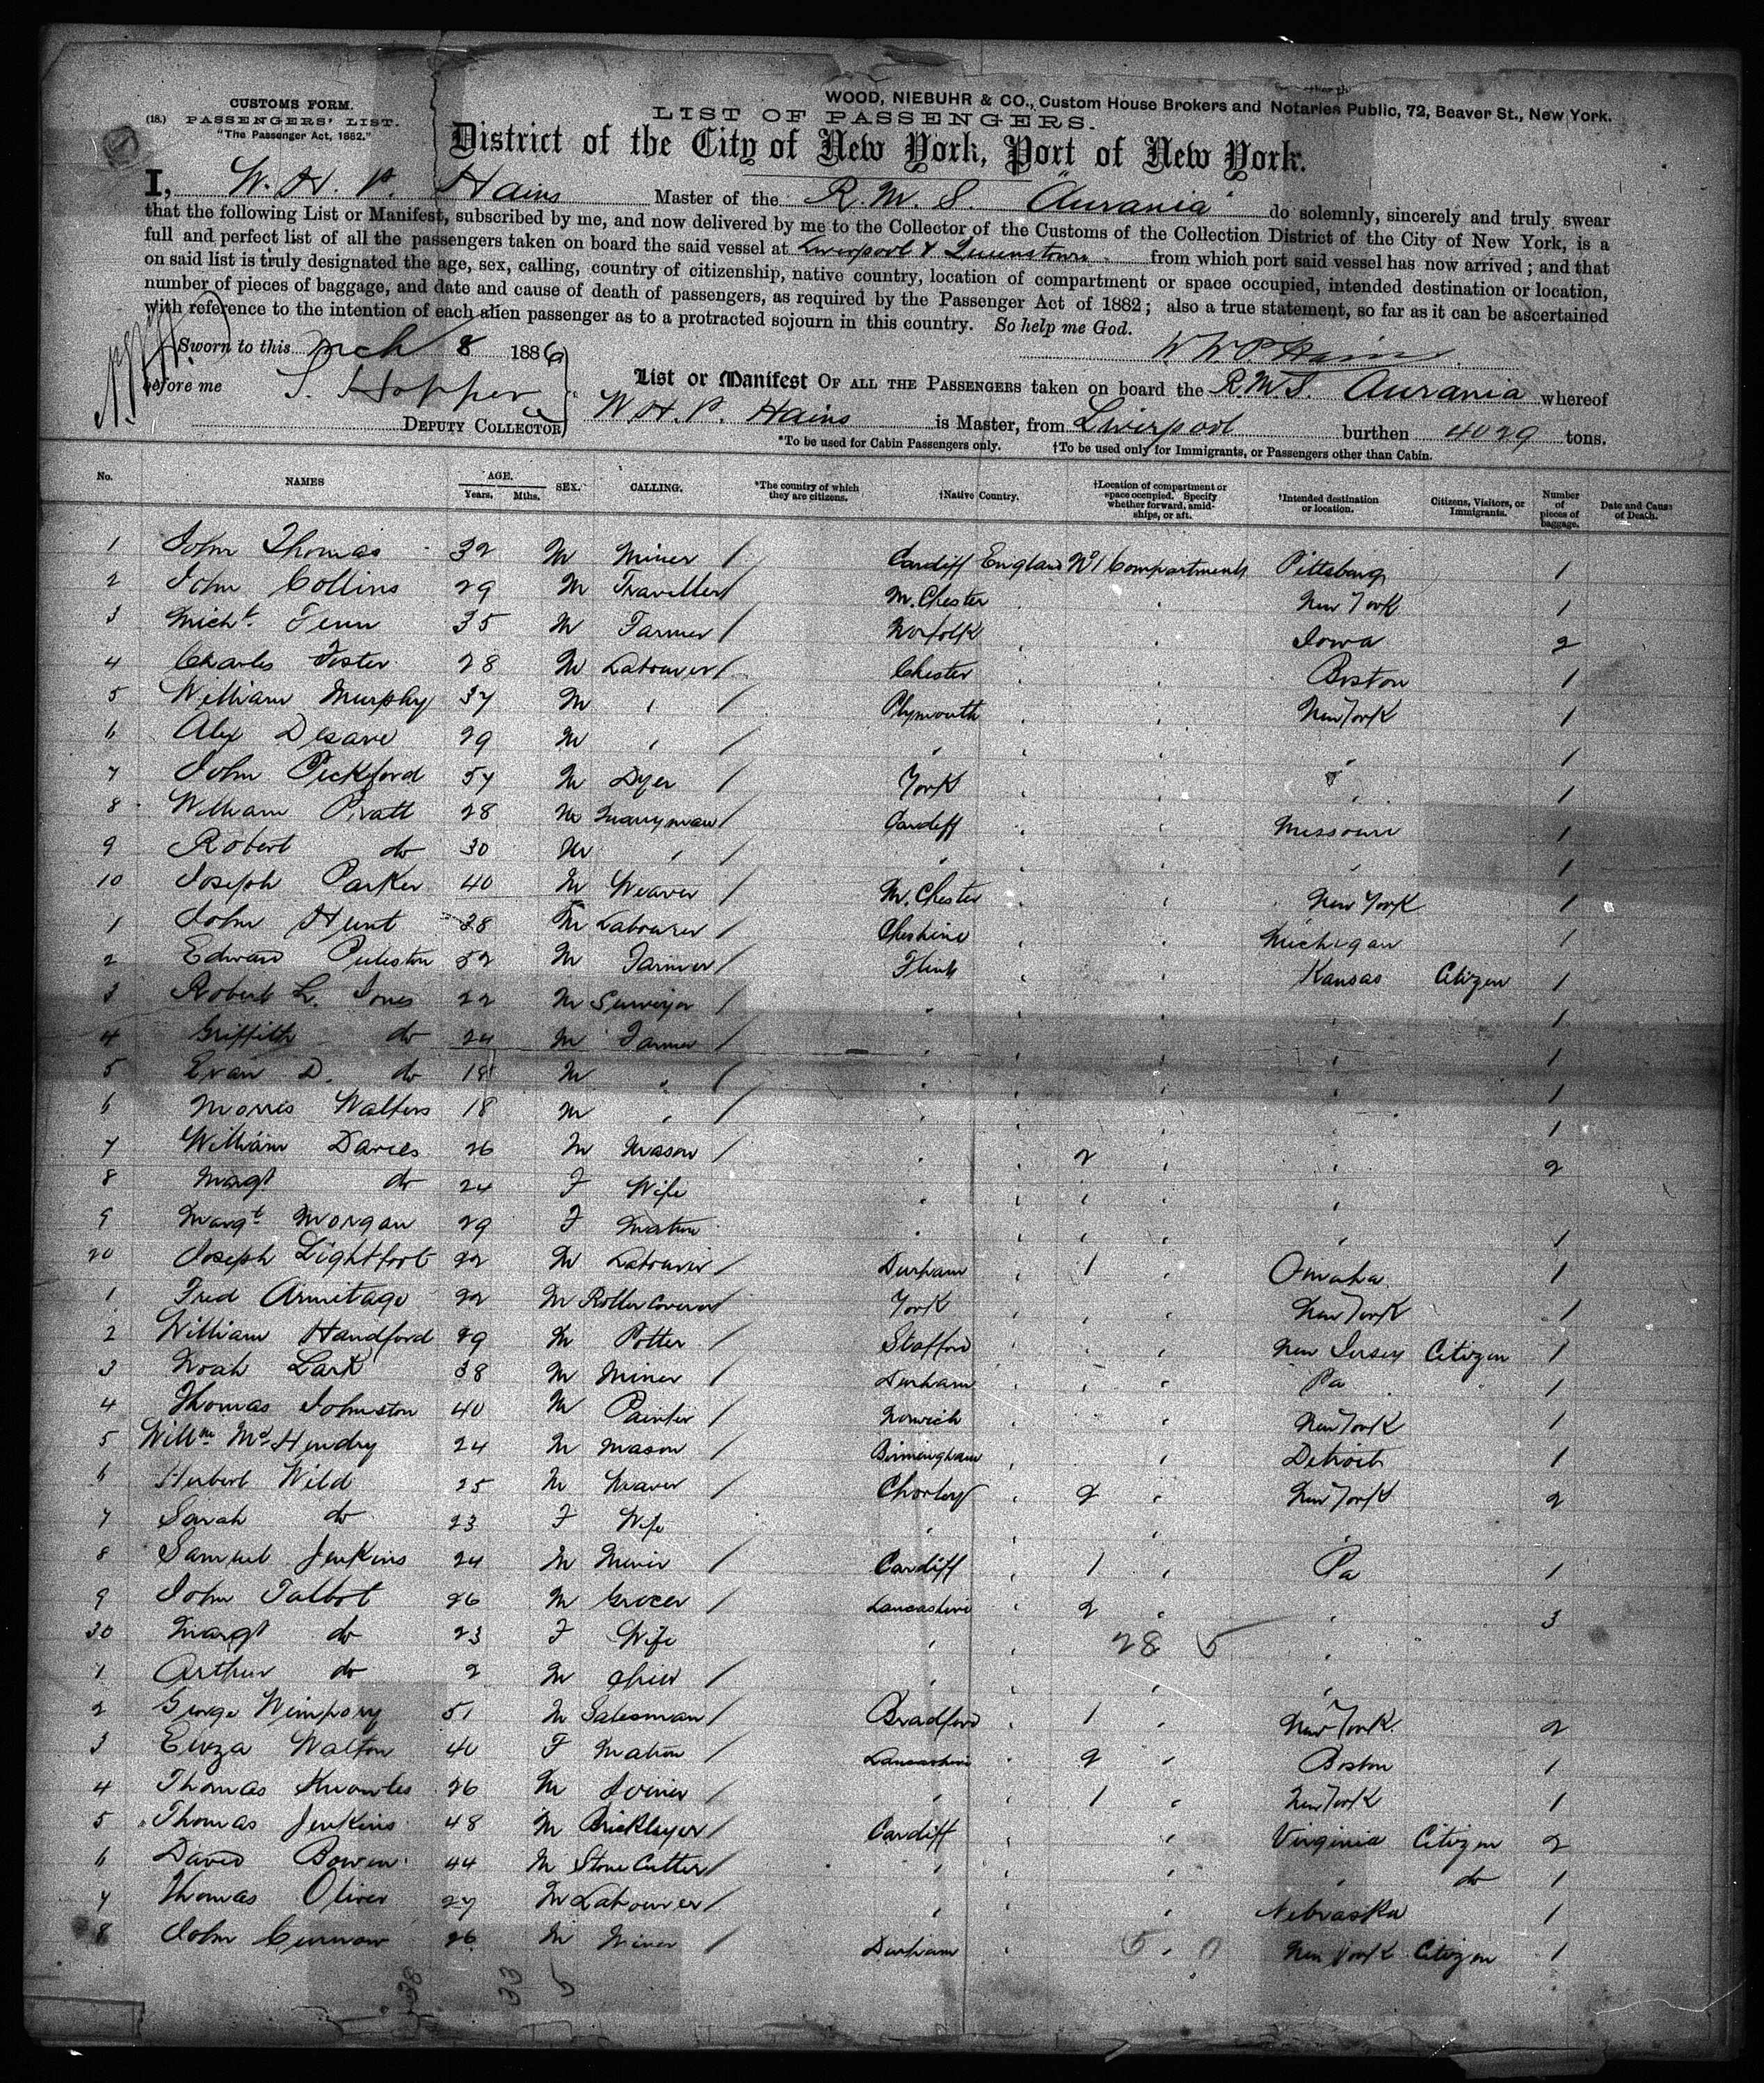 WOOD, NIEBUHR & CO., Custom House Brokers and Notaries Public, 72, Beaver St., New York.
CUSTOMS FORM.
(18.) PASSENGERS' LIST.
"The Passenger Act, 1882."
LIST OF PASSENGERS.
District of the City of New York, Port of New York.
I, W. H. P. Hains Master of the R. M. S. "Aurania" do solemnly, sincerely and truly swear
that the following List or Manifest, subscribed by me, and now delivered by me to the Collector of the Customs of the Collection District of the City of New York, is a
full and perfect list of all the passengers taken on board the said vessel at Liverpool & Queenstown from which port said vessel has now arrived; and that
on said list is truly designated the age, sex, calling, country of citizenship, native country, location of compartment or space occupied, intended destination or location,
number of pieces of baggage, and date and cause of death of passengers, as required by the Passenger Act of 1882; also a true statement, so far as it can be ascertained
with reference to the intention of each alien passenger as to a protracted sojourn in this country. So help me God.
Sworn to this Mch 8 1886 W H P Hains
before me S. Hopper
DEPUTY COLLECTOR
List or Manifest OF ALL THE PASSENGERS taken on board the R.M.S. Aurania whereof
W. H. P. Hains is Master, from Liverpool burthen 4029 tons.
*To be used for Cabin Passengers only. †To be used only for Immigrants, or Passengers other than Cabin.
No. NAMES AGE. Years. Mths. SEX. CALLING. *The country of which they are citizens. †Native Country. †Location of compartment or space occupied. Specify whether forward, amidships, or aft. †Intended destination or location. Citizens, Visitors, or Immigrants. Number of pieces of baggage. Date and Cause of Death.
1 John Thomas 32 M Miner / Cardiff England No 1 Compartment Pittsburg 1
2 John Collins 29 M Traveller / M.Chester " " New York 1
3 Micht. Fenn 35 M Farmer / Norfolk " " Iowa 2
4 Charles Foster 28 M Labourer / Chester " " Boston 1
5 William Murphy 37 M " / Plymouth " " New York 1
6 Alex 29 M " / " " " " 1
7 John Pickford 57 M Dyer / York " " " 1
8 William Pratt 28 M Quarryman / Cardiff " " Missouri 1
9 Robert do 30 M " / " " " " 1
10 Joseph Parker 40 M Weaver / M.Chester " " New York 1
1 John Hunt 38 M Labourer / Cheshire " " Michigan 1
2 Edward Puleston 52 M Farmer / Flint " " Kansas Citizen 1
3 Robert L. Jones 22 M Surveyor / " " " " 1
4 Griffith do 24 M Farmer / " " " " 1
5 Evan D. do 18 M " / " " " " 1
6 Morris Walters 18 M " / " " " " 1
7 William Davies 26 M Mason / " " 2 " " 2
8 Margt do 24 F Wife " " " " "
9 Margt Morgan 29 F Matron " " " " " 1
20 Joseph Lightfoot 22 M Labourer / Durham " 1 " Omaha 1
1 Fred Armitage 22 M Roller Coverer / York " " " New York 1
2 William Handford 29 M Potter / Stafford " " " New Jersey Citizen 1
3 Noah Lark 38 M Miner / Durham " " " Pa 1
4 Thomas Johnston 40 M Painter / Norwich " " New York 1
5 Willm McHendry 24 M Mason / Birmingham " " Detroit 1
6 Herbert Wild 25 M Weaver / Chorley " 2 " New York 2
7 Sarah do 23 F Wife " " " "
8 Samuel Jenkins 24 M Miner / Cardiff " 1 " Pa 1
9 John Talbot 26 M Grocer / Lancashire " 2 " " 3
30 Margt do 23 F Wife " " 28 5 "
1 Arthur do 2 M Child / " " " "
2 George 51 M Salesman / Bradford " 1 " New York 2
3 Eliza Walton 40 F Matron / Lancashire " 2 " Boston 1
4 Thomas Knowles 26 M Joiner / " " 1 " New York 1
5 Thomas Jenkins 48 M Bricklayer / Cardiff " " Virginia Citizen 2
6 David Bowen 44 M Stone Cutter / " " " " do 1
7 Thomas Oliver 27 M Labourer / " " Nebraska 1
8 John Curnow 26 M Miner / Durham " 5 " 0 New York Citizen 1
38 33 5